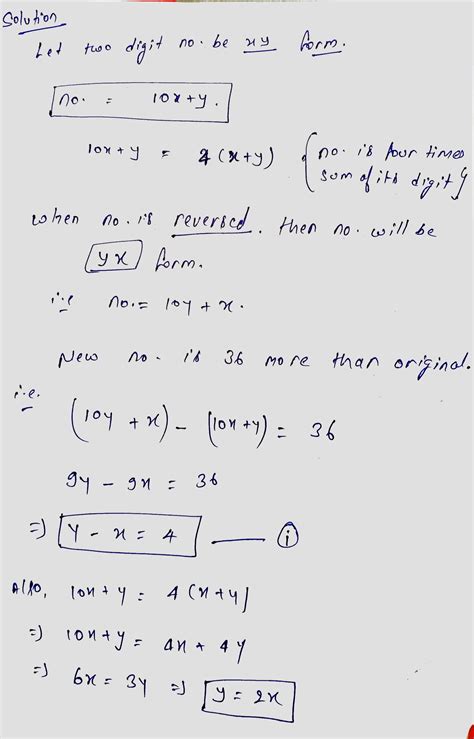 Solution
Let two digit no. be xy form.
no. = 10x+y.
10x+y = 4(x+y) {no. is four times
sum of its digit}
when no. is reversed. then no. will be
yx form.
i.e no. = 10y + x.
New no. is 36 more than original.
i.e.
(10y + x) - (10x+y) = 36
9y - 9x = 36
=) y - x = 4 —— (i)
Also, 10x + y = 4(x+y)
=) 10x+y = 4x + 4y
=) 6x = 3y =) y = 2x